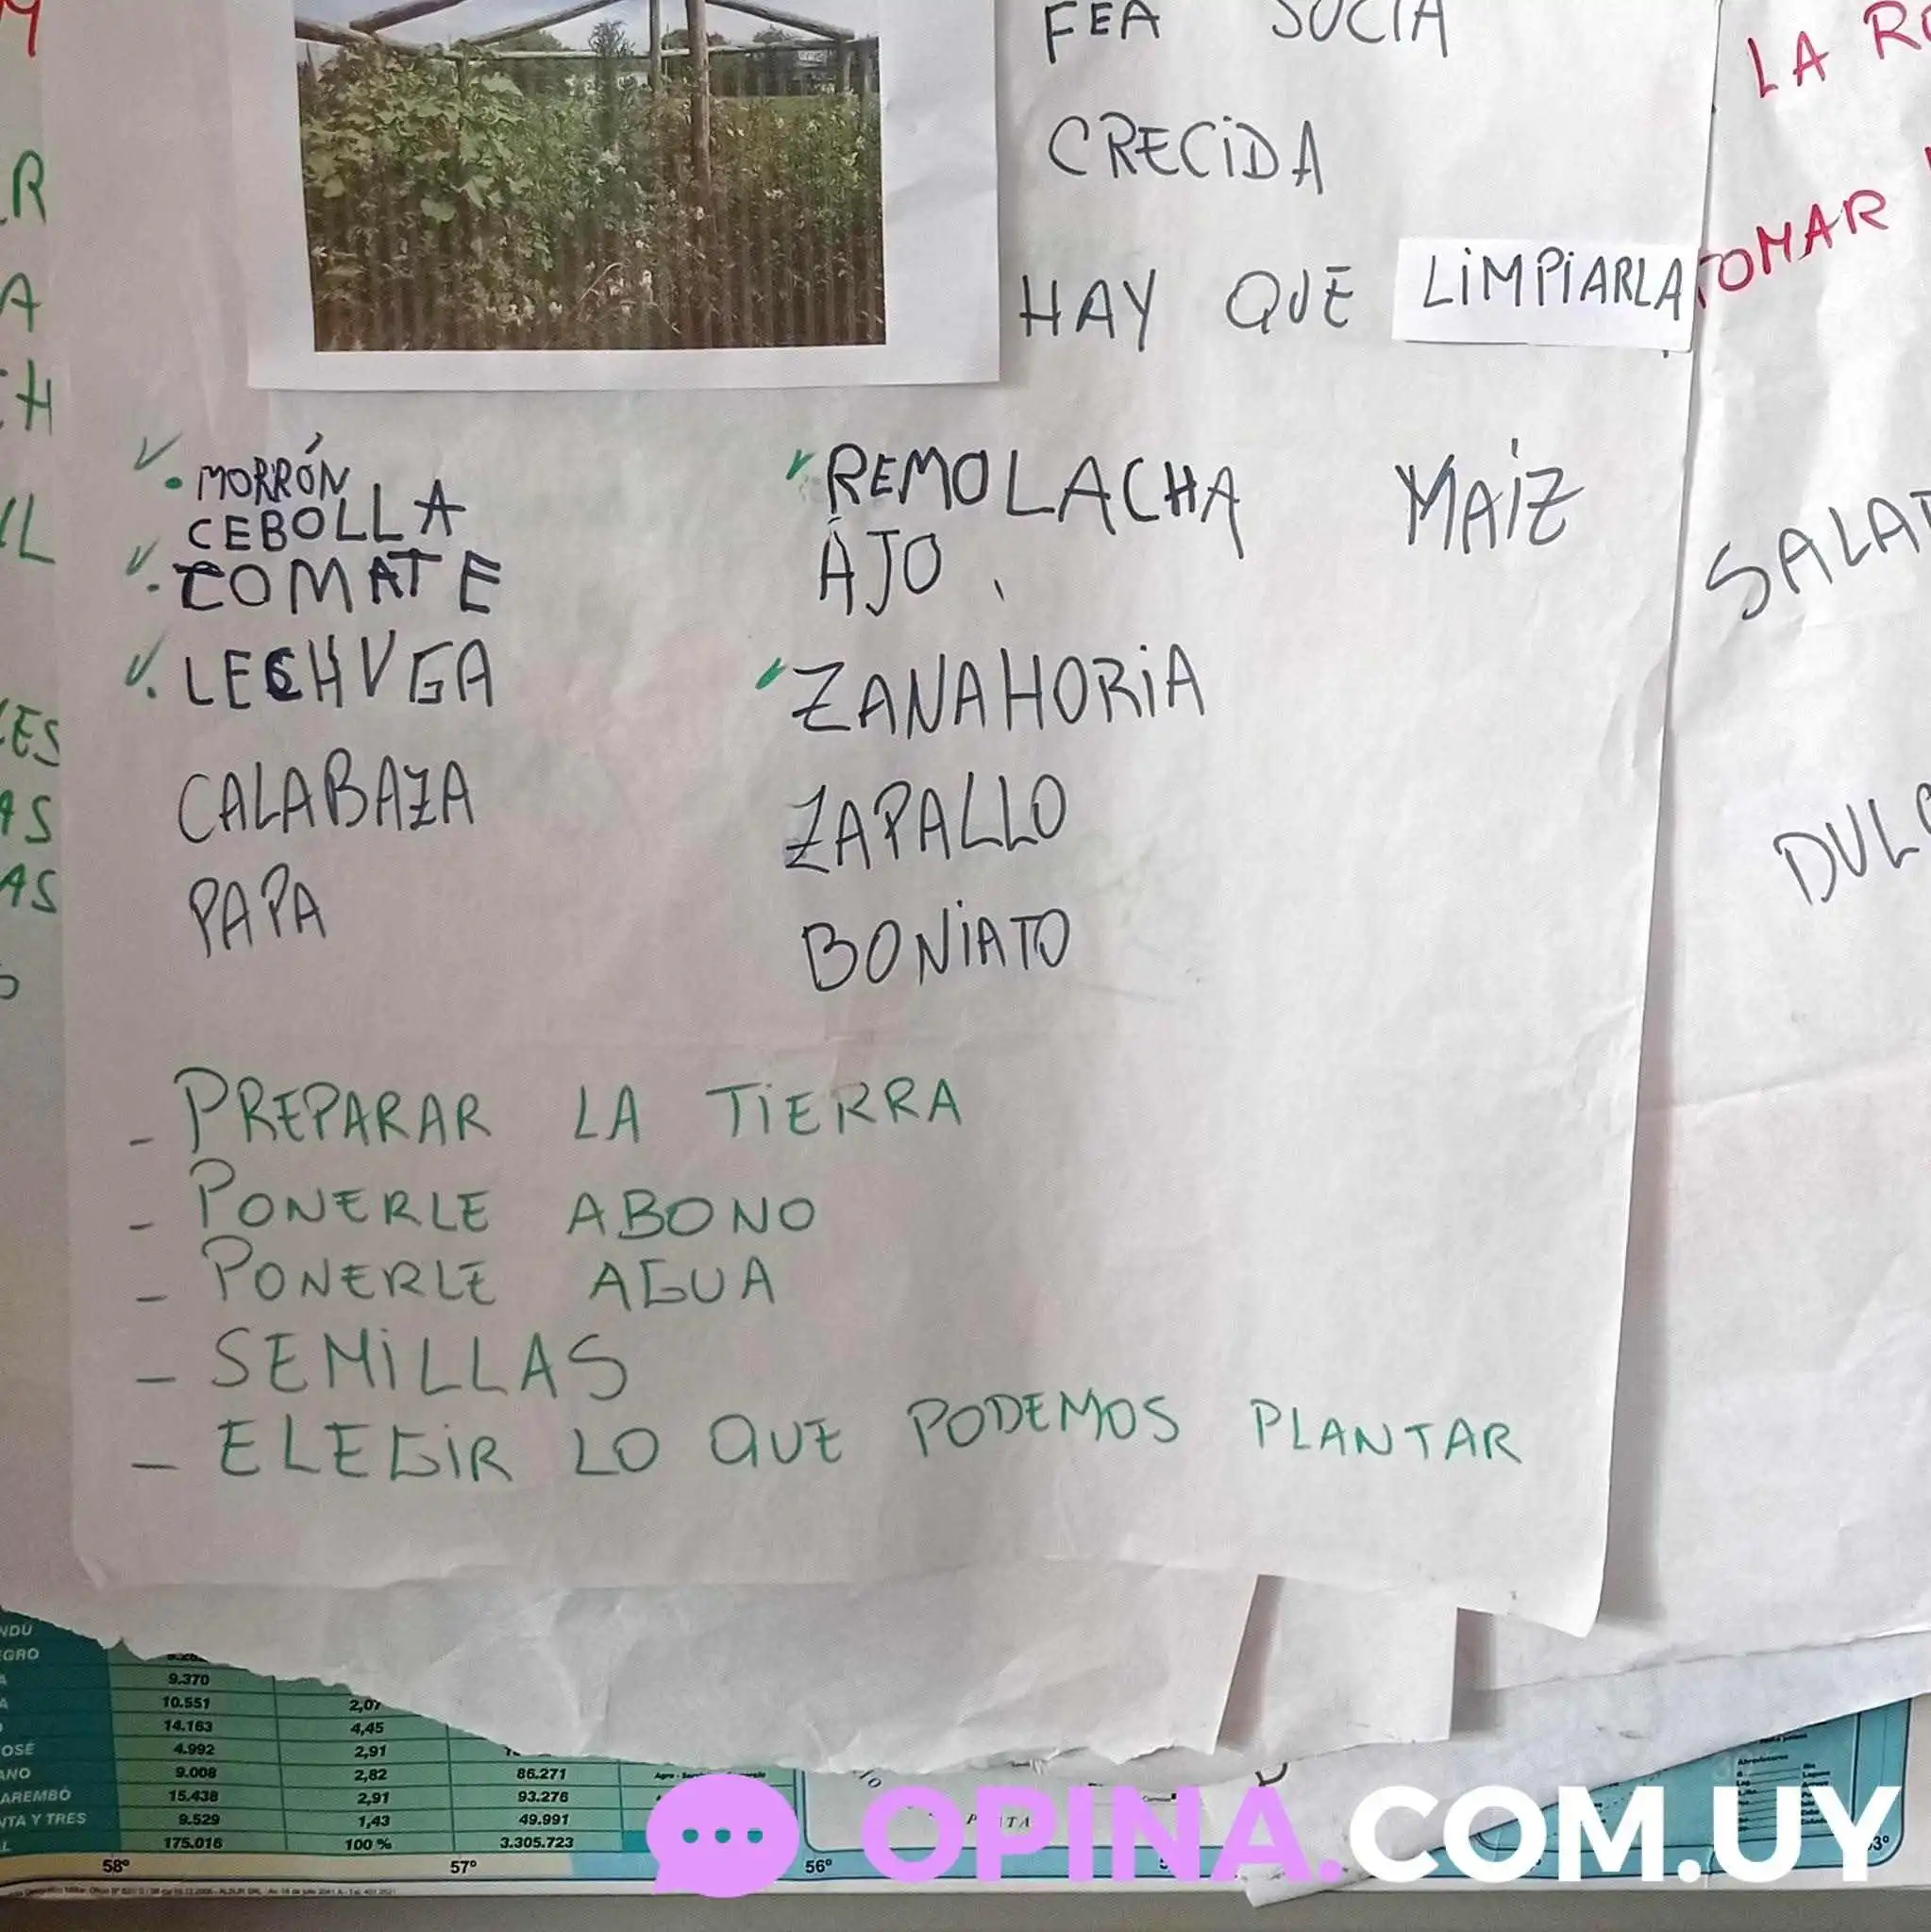 FEA SUCIA
CRECIDA
HAY QUE LIMPIARLA
MORRÓN
CEBOLLA
TOMATE
LECHUGA
CALABAZA
PAPA
REMOLACHA
AJO
ZANAHORIA
ZAPALLO
BONIATO
MAÍZ
- PREPARAR LA TIERRA
- PONERLE ABONO
- PONERLE AGUA
- SEMILLAS
- ELEGIR LO QUE PODEMOS PLANTAR
LA
TOMAR
9.370
10.551 2,07
14.163 4,45
4.992 2,91
9.008 2,82 86.271
AREMBÓ 15.438 2,91 93.276
TA Y TRES 9.529 1,43 49.991
175.016 100 % 3.305.723
58° 57° 56°
OPINA.COM.UY